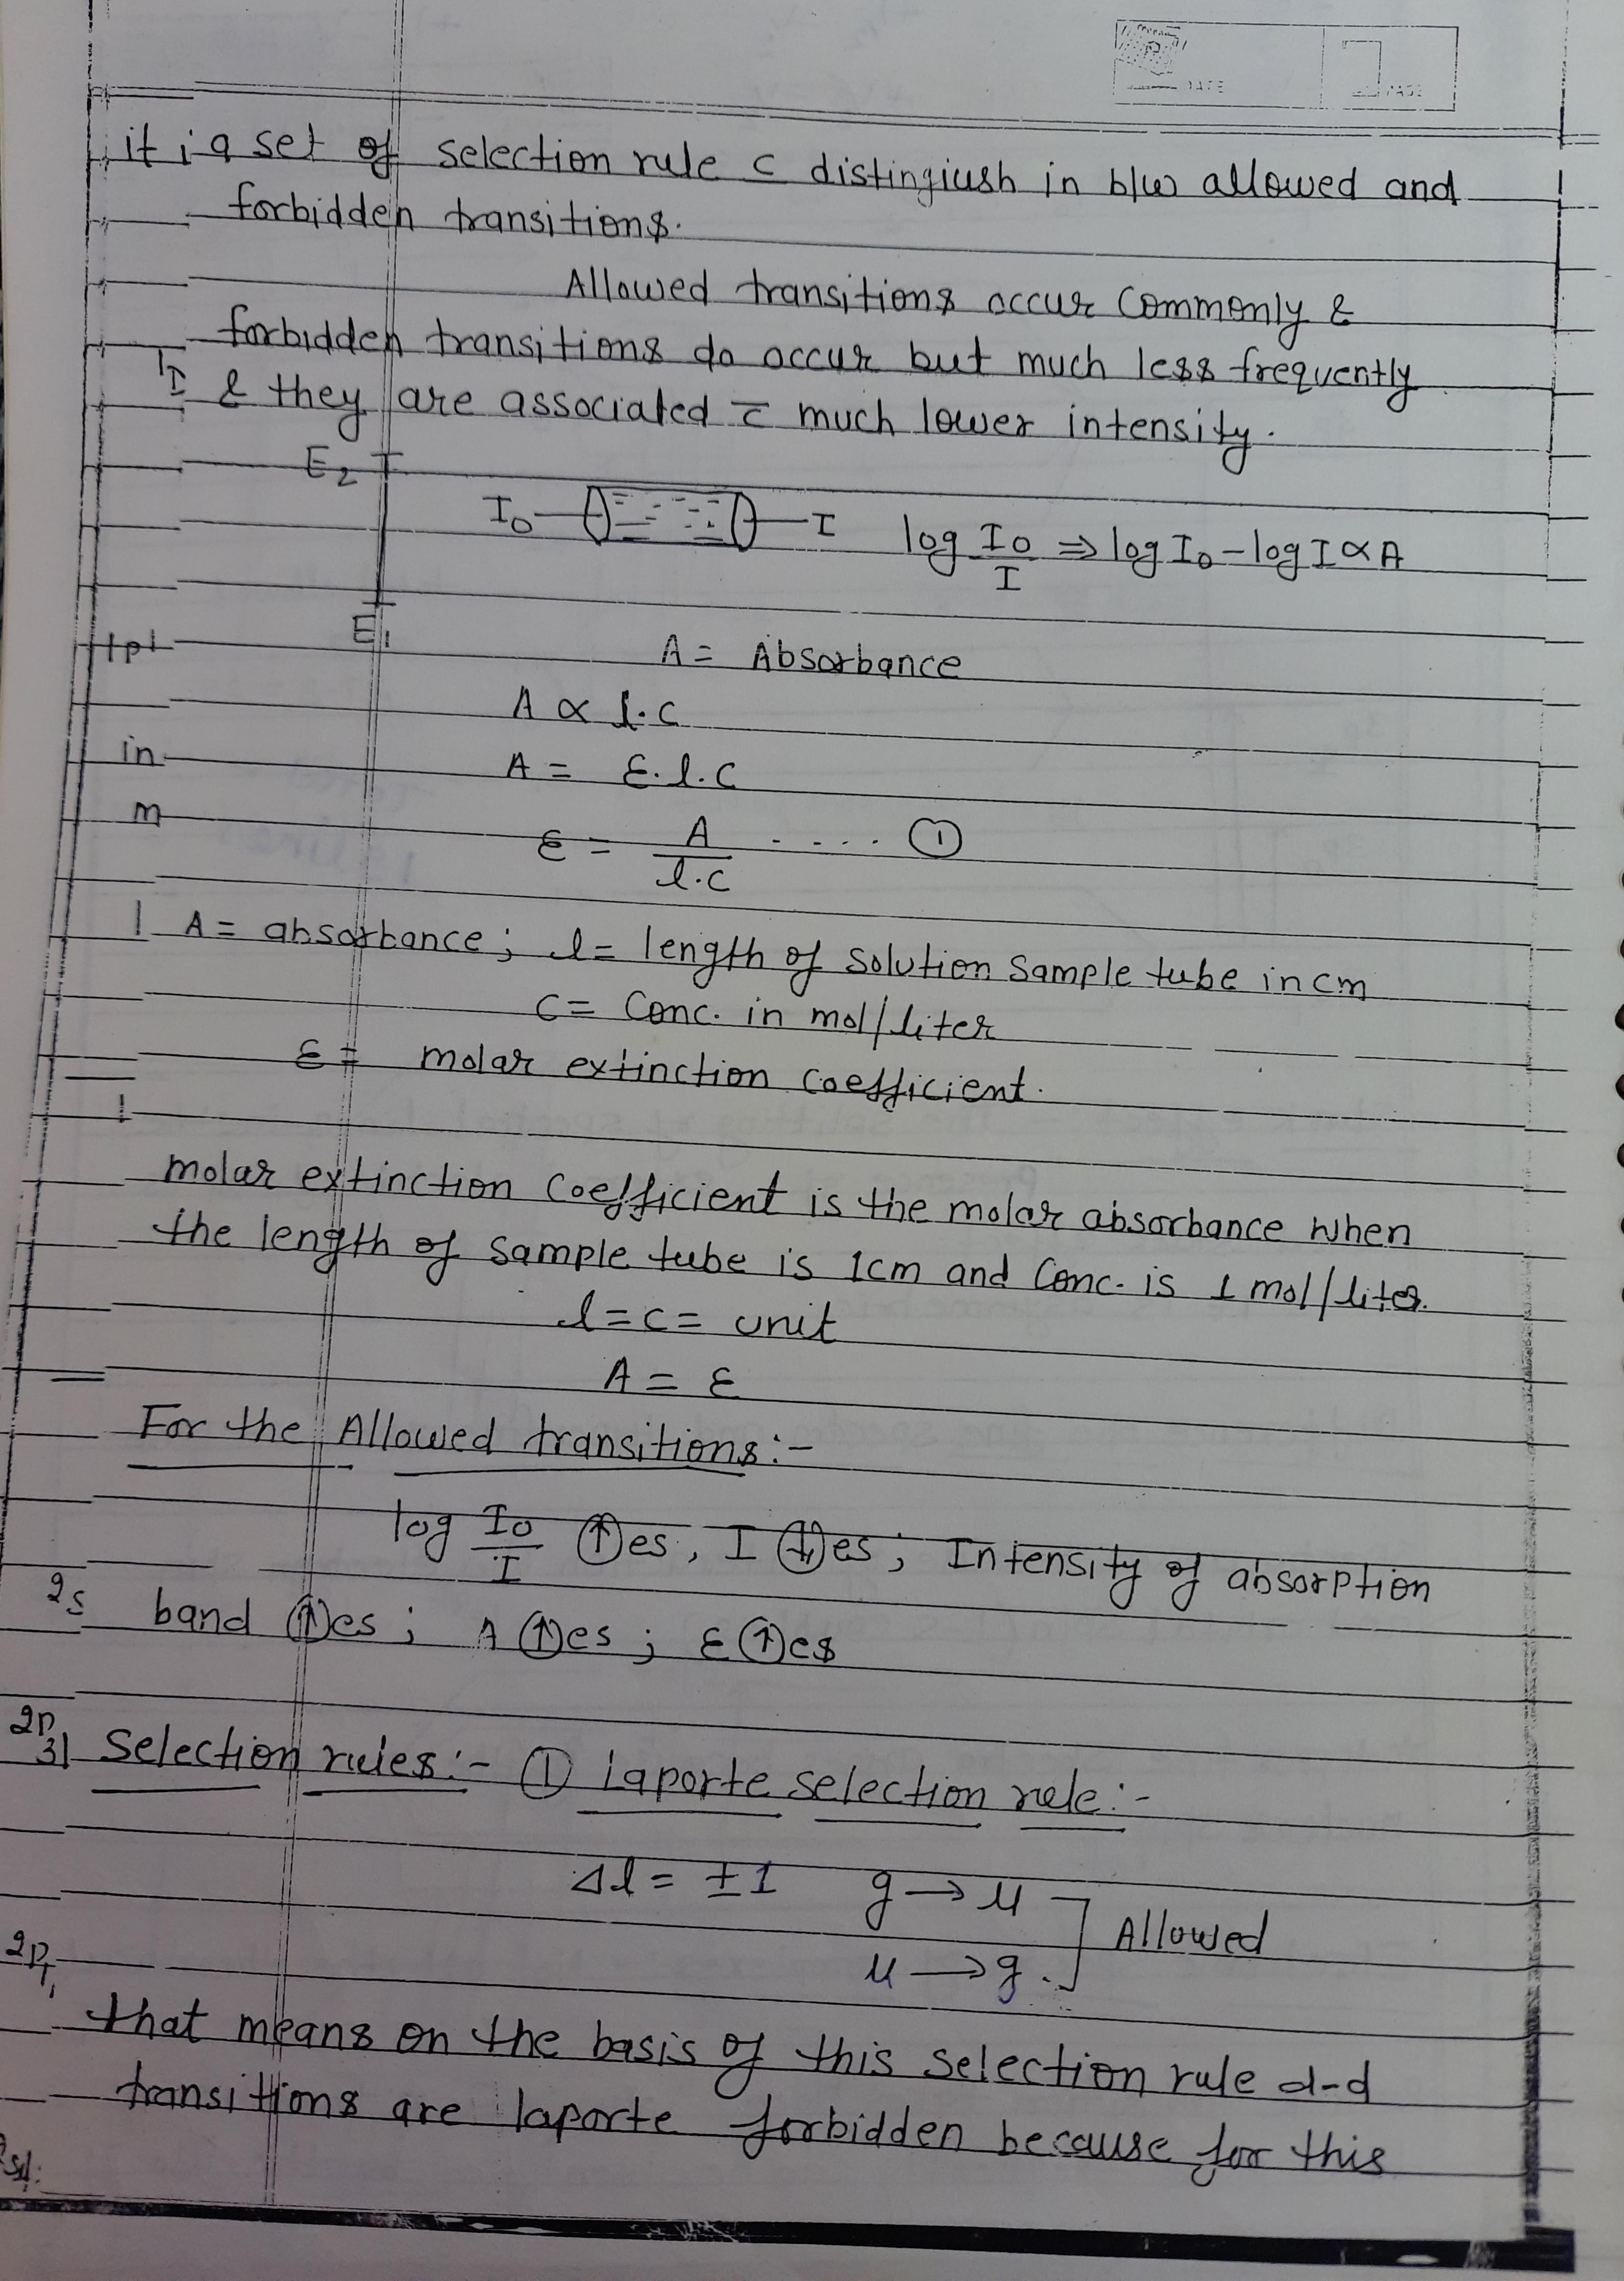 DATE
PAGE
it i a set of selection rule c distingiush in b/w allowed and
forbidden transitions.
Allowed transitions occur commonly &
forbidden transitions do occur but much less frequently
& they are associated c̄ much lower intensity.
E₂
I₀ I log I₀/I ⇒ log I₀ - log I ∝ A
E₁
A = Absorbance
A ∝ l.c
in
A = ε.l.c
m
ε = A/l.c ..... ①
A = absorbance; l = length of solution sample tube in cm
c = conc. in mol/liter
ε = molar extinction coefficient.
molar extinction coefficient is the molar absorbance when
the length of sample tube is 1cm and conc. is 1 mol/liter.
l = c = unit
A = ε
For the Allowed transitions:-
log I₀/I ↑es, I ↓es; Intensity of absorption
2s
band ↑es; A ↑es; ε ↑es
Selection rules:- ① Laporte selection rule:-
Δl = ±1 g → u
Allowed
u → g.
that means on the basis of this selection rule d-d
transitions are laporte forbidden because for this